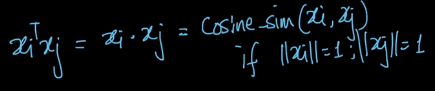 xiᵀxj = xi · xj = Cosine_sim(xi, xj)
if ||xi||=1 ; ||xj||=1